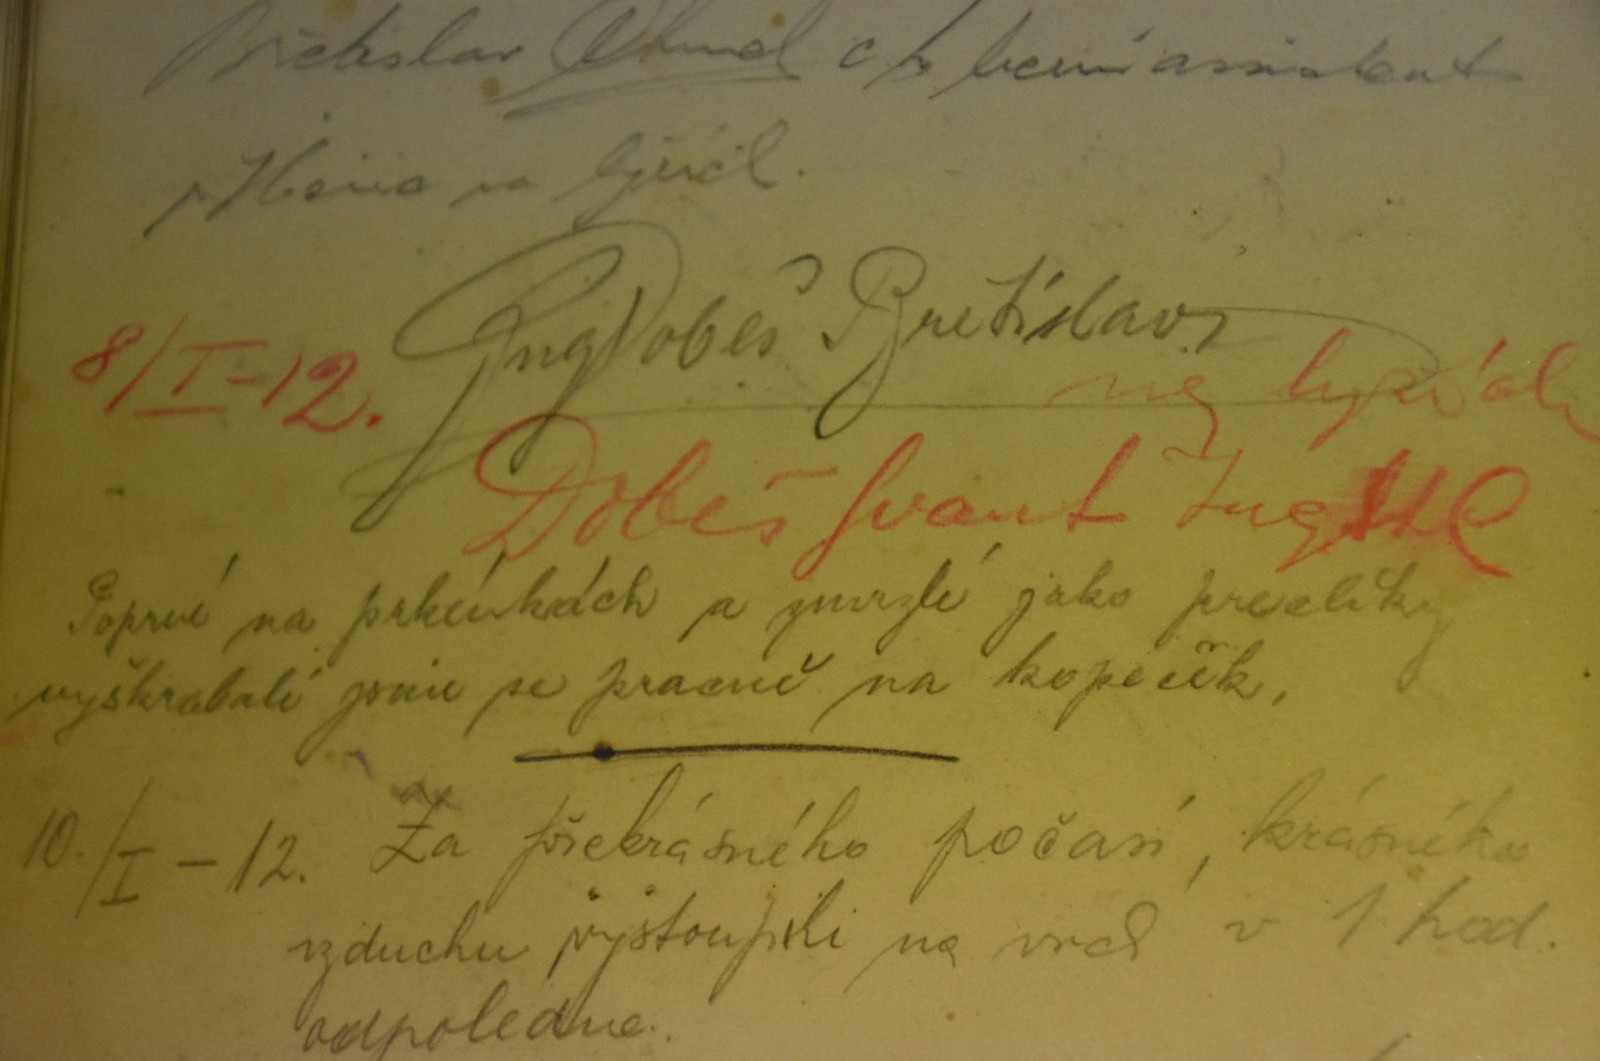 Břetislav Chmel c. k. berní assistent
Ing Dobeš Břetislav
8/I-12.
na lyžích
Dobeš Ivant Ing
Poprvé na prkénkách a zmrzlé jako preclíky
vyškrabali jsme se pracně na kopeček.
10./I-12. Za překrásného počasí, krásného
vzduchu vystoupili na vrch v 1 hod.
odpoledne.